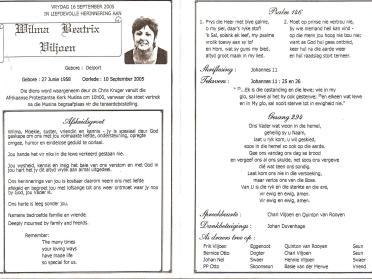 VRYDAG 16 SEPTEMBER 2005
IN LIEFDEVOLLE HERINNERING AAN
Wilma Beatrix
Viljoen
Gebore : Delport
Gebore : 27 Junie 1958 Oorlede : 10 September 2005
Die diens word waargeneem deur ds Chris Kruger vanuit die
Afrikaanse Protestantse Kerk Musina om 10h00, verwaar die stoet vertrek
na die Musina begraafplaas vir die teraardebestelling.
Afskeidsgroet
Wilma, Moekie, suster, vriendin en kennis - jy is spesiaal deur God
geskape om ons met jou volmaakte liefde, ondersteuning, opregte
omgee, humor en eindelose geduld te oorlaai.
Jou hande het vir niks in die lewe verkeerd gestaan nie.
Jou wysheid, kennis en insig het baie van ons verstom en met God in
jou hart het jy dit altyd vrylik aan almal uitgedeel.
Ons herinneringe van jou is kosbaar daarom neem ons met liefde
afskeid en begroet jou met lofsange tot ons weer ontmoet waar jy nou
by God, jou Vader is.
Ons harte is leeg sonder jou.
Namens bedroefde familie en vriende.
Deeply mourned by family and friends.
Remember:
The many times
your loving ways
have made life
so special for us.
Psalm 146
1. Prys die Heer met blye galme,
o my siel, daar's ryke stof!
'k Sal, solank ek leef, my psalme
vrolik toewy aan sy lof
en Hom, wat sy guns my bied,
altyd groot maak in my lied.
2. Moet op prinse nie vertrou nie,
by wie niemand heil kan vind -
op die mens jou hoop nie bou nie;
want as God hul gees ontbind,
keer hul na die aarde weer
en hul raadslag stort terneer.
Skriflesing : Johannes 11
Teksvers : Johannes 11 : 25 en 26
" Ek is die opstanding en die lewe; wie in my
glo, sal lewe al het hy ook gesterwe. En elkeen wat lewe
en in My glo, sal nooit sterwe tot in ewigheid nie."
Gesang 294
Ons Vader wat woon in die hemel,
geheilig sy u Naam,
laat u ryk kom, u wil geskied,
soos in die hemel so ook op die aarde.
Gee ons vandag ons dag'se brood
en vergeef ons al ons skulde, net soos ons vergewe
dié wat teen ons sondig.
Laat ons nie in die versoeking,
maar verlos ons van die Bose.
Van U is die ryk en die sterkte en die ere,
vir ewig en ewig, amen.
Vir ewig en ewig, amen.
Spreekbeurte : Charl Viljoen en Quinton van Rooyen
Dankbetuigings : Johan Duvenhage
As draers tree op :
Frik Viljoen Eggenoot Quinton van Rooyen Seun
Bernice Otto Dogter Charl Viljoen Seun
Johan Nel Swaer Hennie Viljoen Swaer
PP Otto Skoonseun Basie van der Merwe Vriend